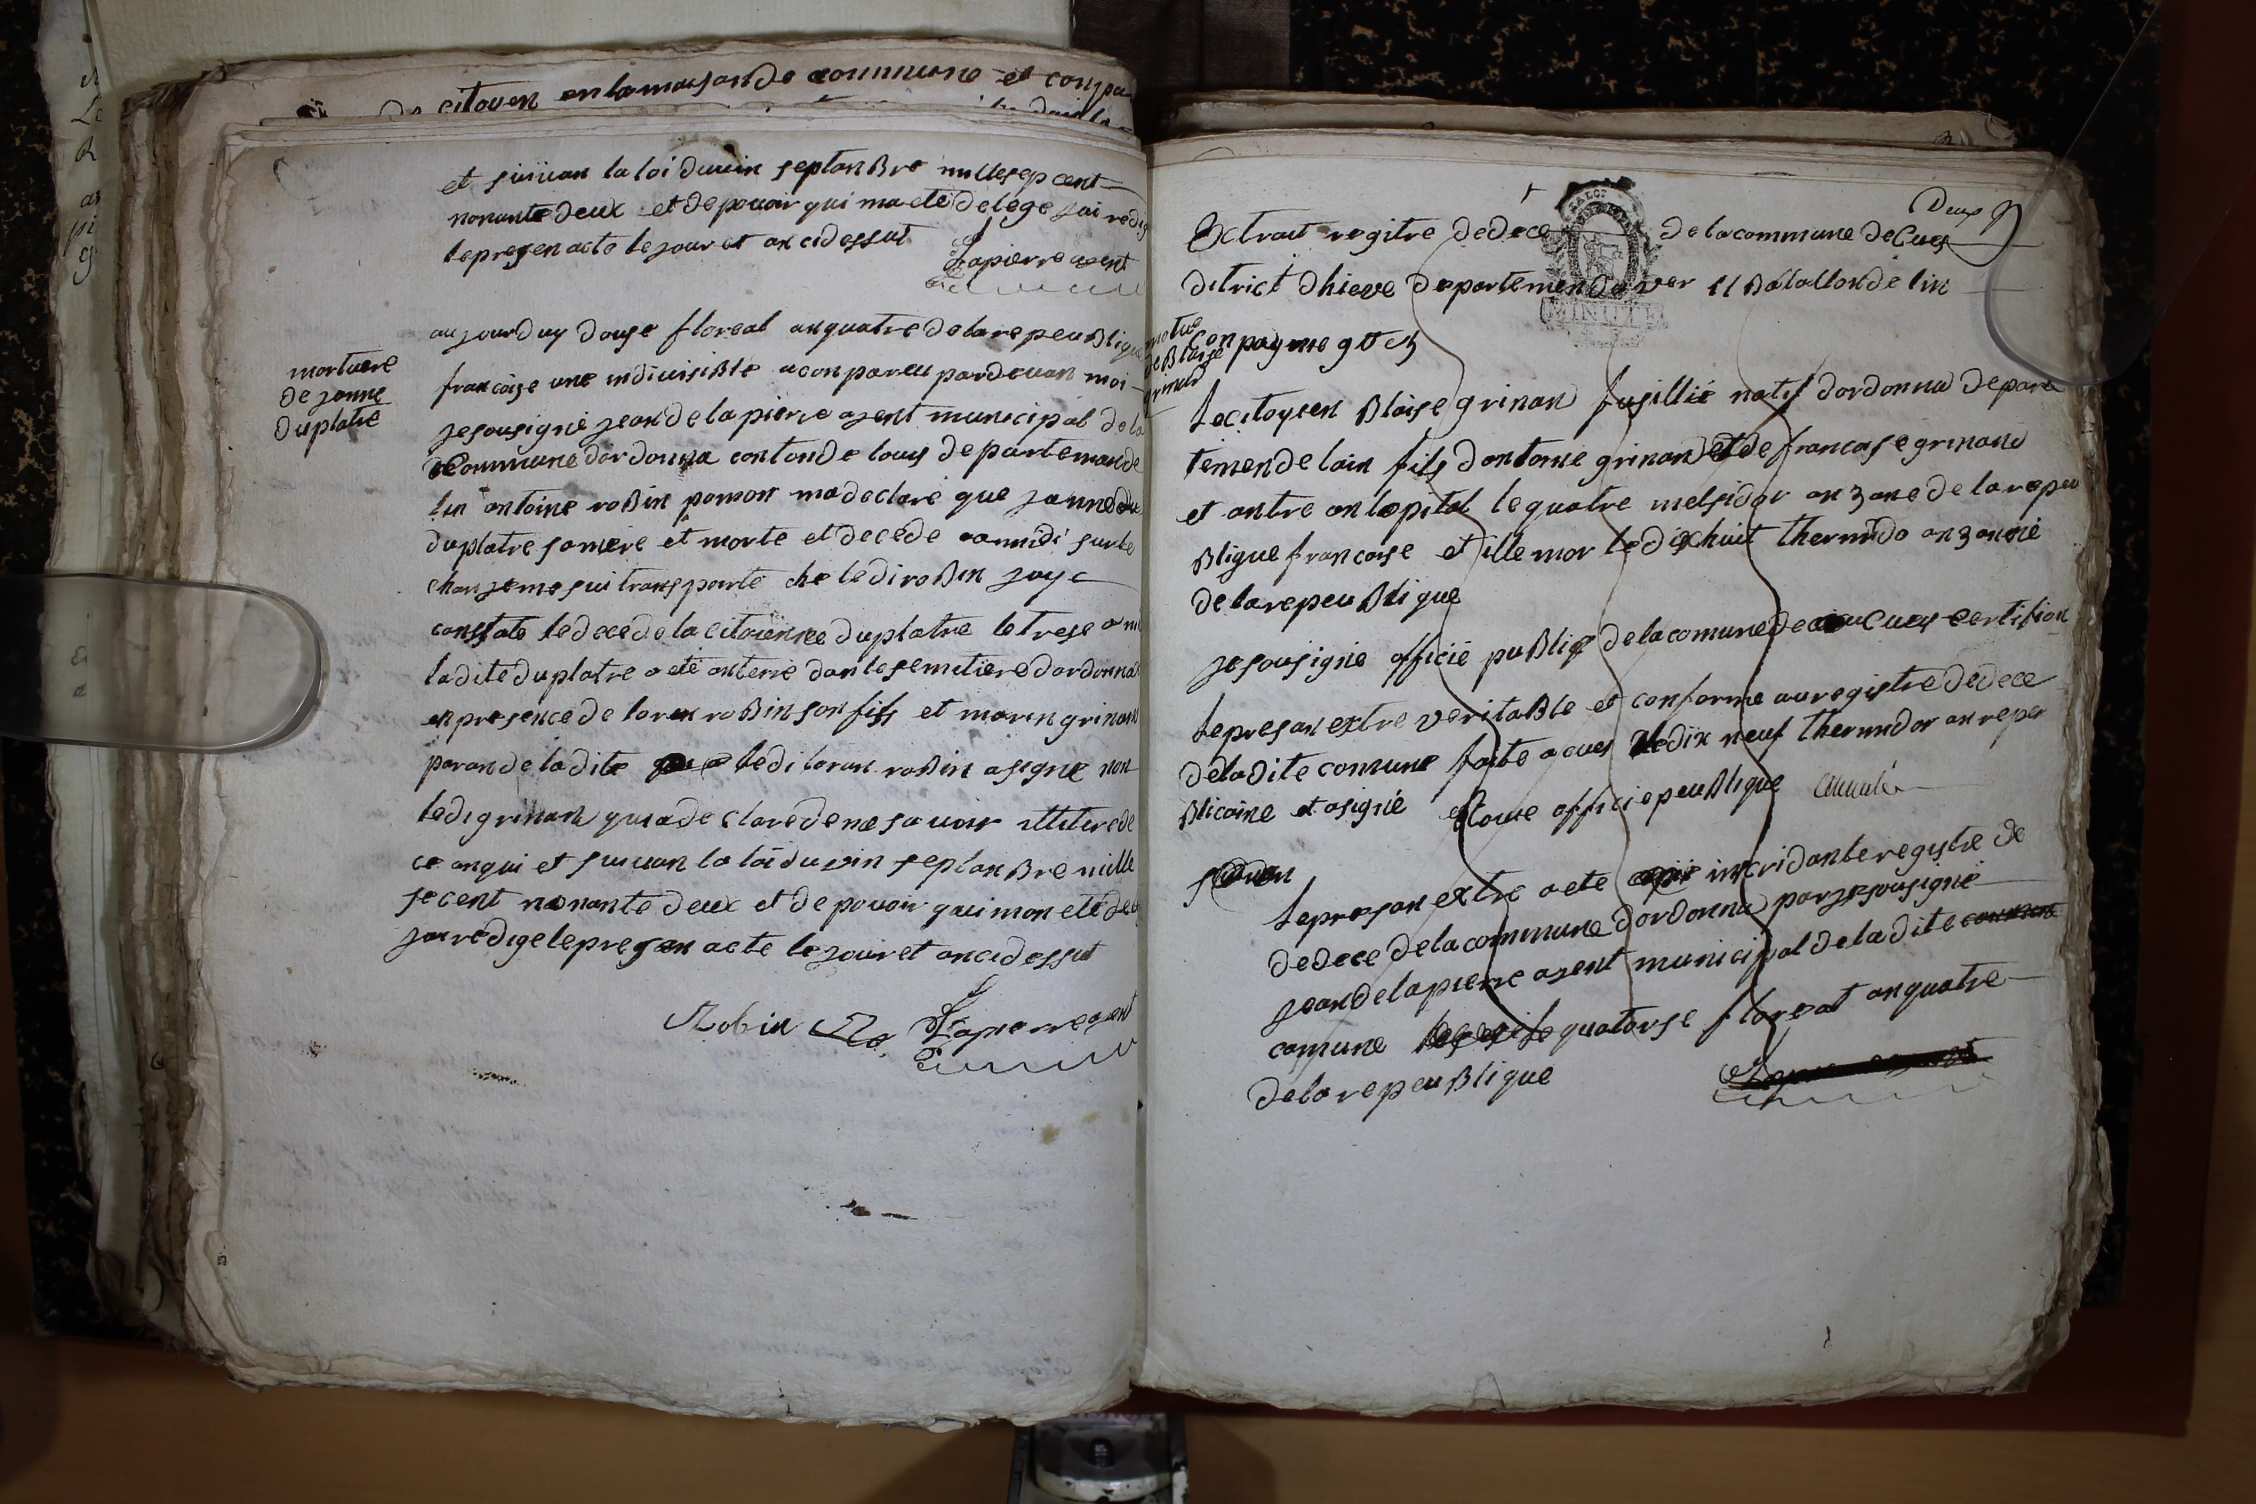 de citoyen en la maison de commune et conpa
et suivan la loi du vin septanbre mille sep cent
nonante deux et de pouvoir qui ma eté delege jai redig
le presen acte le jour et an cidessut
Lapierre agent
mortuere
de janne
duplatre
aujourduy douse floreal an quatre de la repeublique
francoise une indivisible a conpareu pardevan moi
je sousigné jean delapierre agent municipal de la
commune dordonna canton de louis departeman de
lin antoine robin pamon ma declaré que janne du
duplatre sa mere et morte et decede a midi sur le
chan je me sui transporté che le di robin jay
constate le dece de la citoienne duplatre le trese a mi
ladite duplatre a eté anterré dan le semetiere dordonna
en presence de loran robin son fils et marin grinan
paran de ladite le di loran robin a signe non
le di grinan qui a declaré de ne savoir illitere de
ce anqui et suivan la loi du vin septanbre mille
se cent nonante deux et de pouvoir qui mon eté de
jai redige le presen acte le jour et an cidessut
Robin Lapierre agent
Deux
Extrait regitre de dece de la commune de Cuers
ditrict dhieve departemen du ver 11 batallon de lin
MINUTE
de Blaise
grinan
conpagnie
Le citoyen Blaise grinan fusillié natif dordonna depar
temen de lain fils dantoine grinan et de francoise grinand
et antre an lopital le quatre melsidor an 3 ane de la repeu
blique francoise et ille mor le dixhuit thermido an 3 annee
de la repeublique
je sousigné officié publiq de la comune de Cuers certifion
le presan extre veritable et conforme au registre de dece
de la dite comune faite a cuers le dix neuf thermidor an repeu
blicaine et a signé officié peublique
le presan extre a eté inscri dan le registre de
de dece de la commune dordonna par je sousigné
jean delapierre agent municipal de la dite
comune le quatorse floreal an quatre
de la repeublique